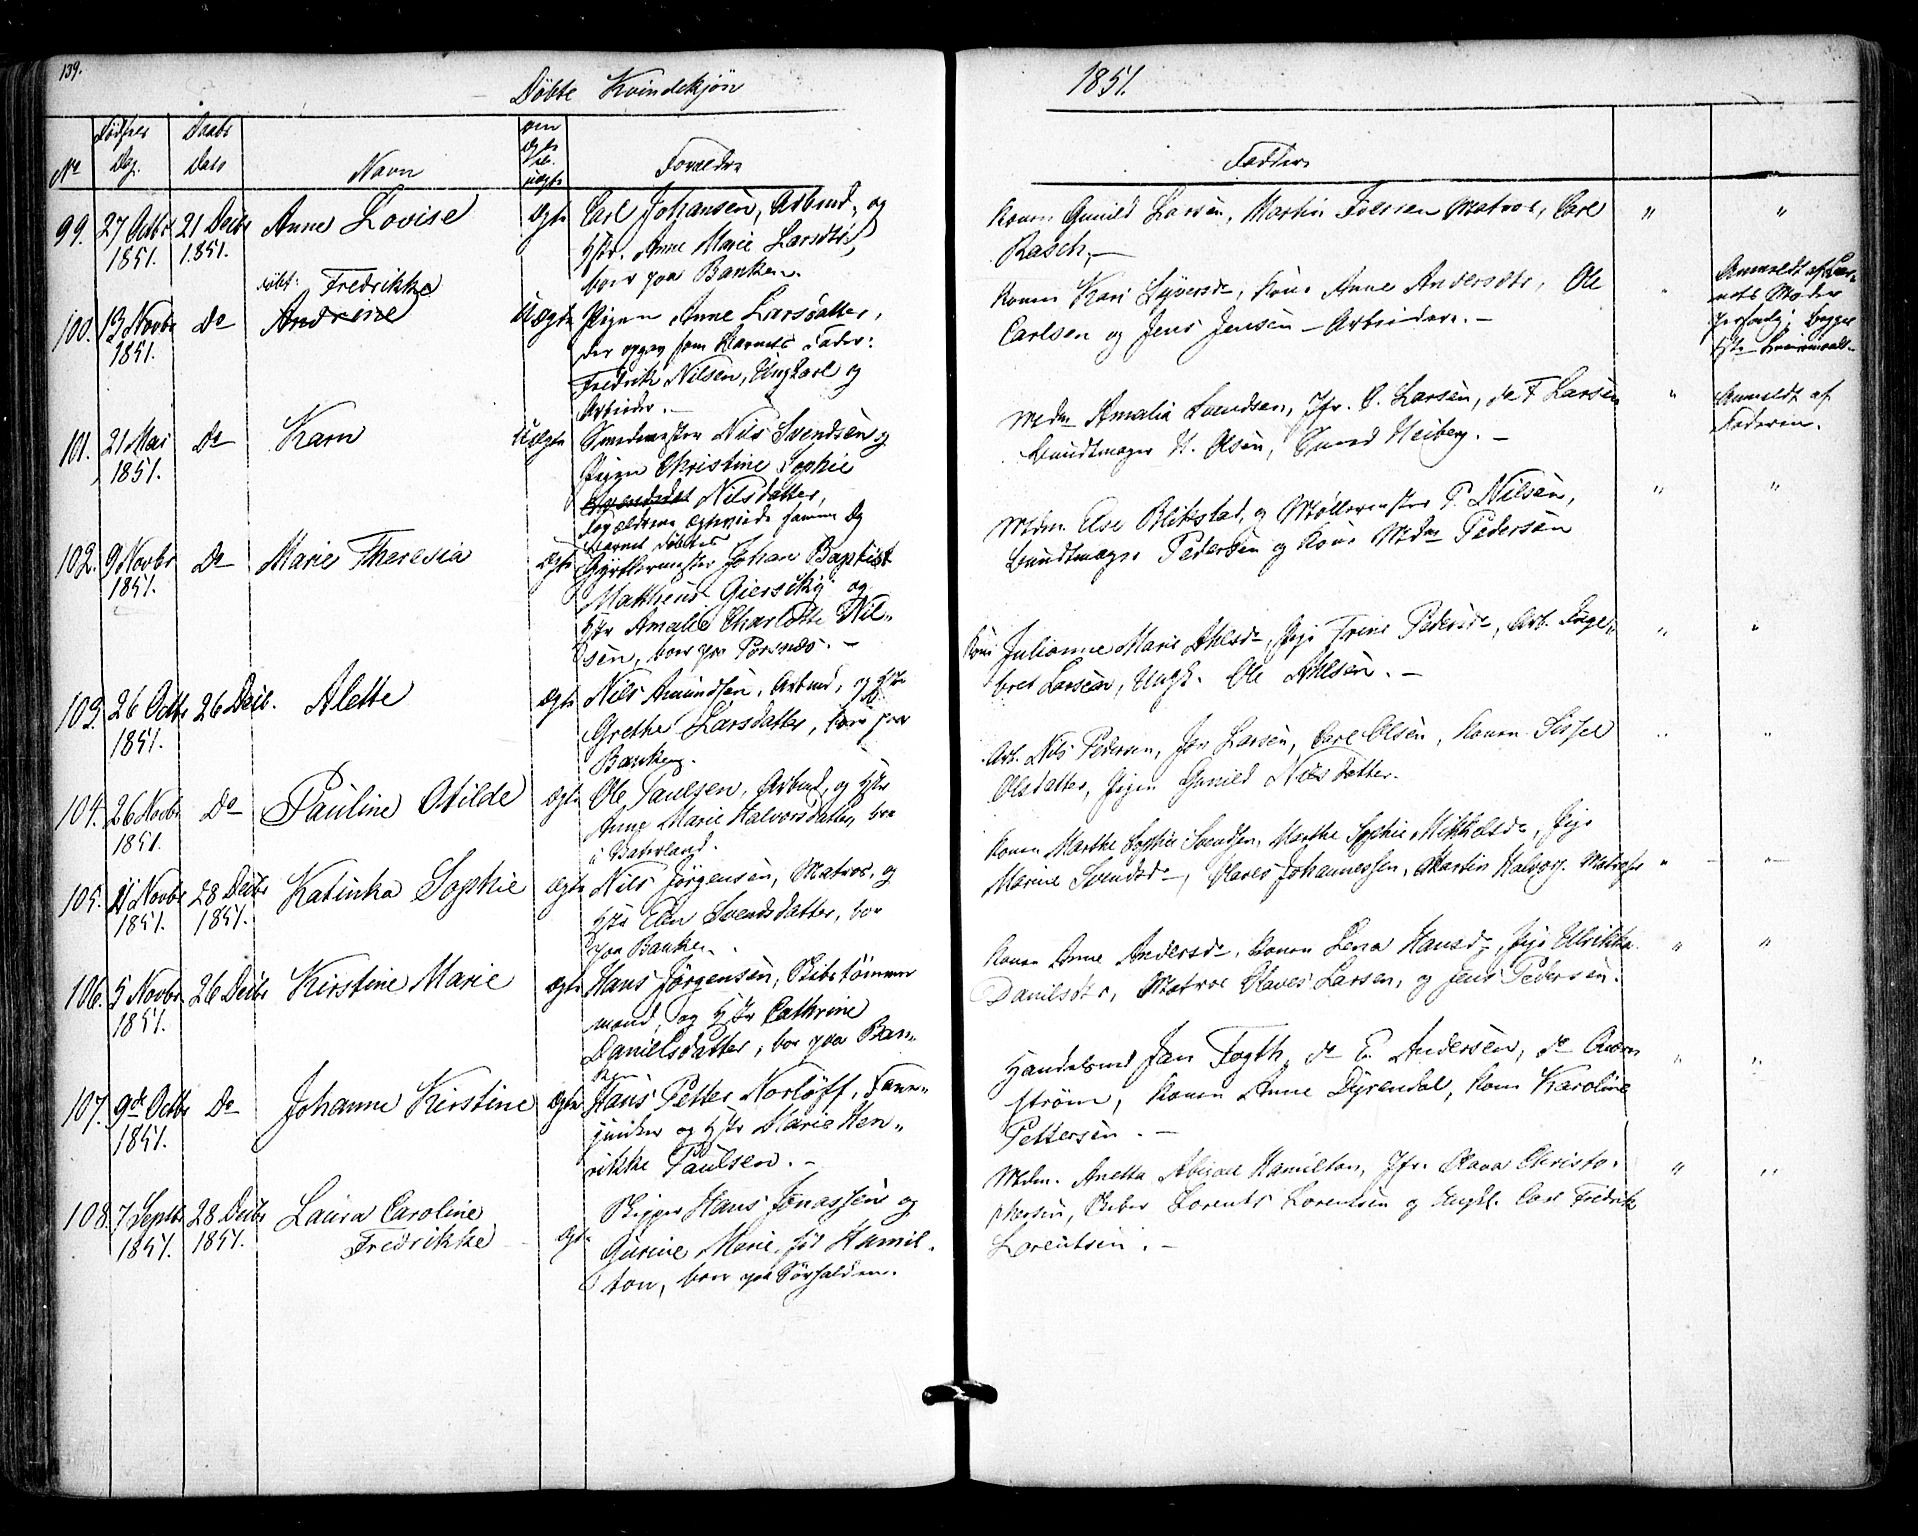 139.
Döbte Kvindekjön
1851.
No
Födsels Dag.
Daabs Dato
Navn
om ægte el. uægte
Forældre
Faddere
99. 27 Octbr 1851. 21 Decbr 1851. Anne Lovise ægte Carl Johansen, Arbmd, og
Hstr. Anne Marie Larsdtr,
boer paa Banken.
Konen Gunild Larsen, Martin Iversen Matros, Carl
Rasch. —
100. 13 Novbr 1851. Do döbt: Fredrikke
Andrine
Uægte Pigen Anne Larsdatter,
der opgav som Barnets Fader:
Fredrik Nilsen, Ungkarl og
Arbeider. —
Konen Kari Syversdr, Kone Anne Andersdtr, Ole
Carlsen og Jens Jensen — Arbeidere. —
Anmeldt af Bar-
nets Moder
personlig, begges
1ste
101. 21 Mai 1851. Do Karn Uægte Smedemester Nils Svendsen og
Pigen Christine Sophie
Svendsdat Nilsdatter,
Forældrene ægteviede samme Dag
Barnet döbtes
Mdm Amalia Svendsen, Jfr. C. Larsen, de F Larsen
Bundtmager H. Olsen, Smed Heiberg. —
Anmeldt af
Faderen.
102. 9 Novbr 1851. Do Marie Theresia ægte Gjörtlermester Johan Baptist
Matheus Giersikÿ og
Hstr Amalie Charlotte Nil-
sen, boer paa Porsnæs. —
Mdm. Else Blikstad, og Möllermester P. Nilsen,
Bundtmager Pedersen og Kone Mdm Pedersen
103. 26 Octbr 1851. 26 Decb. Alette ægte Nils Amundsen, Arbmd, og Hstr
Grethe Larsdatter, boer paa
Banken.
Kone Julianne Marie Ahlsdr, Pige Trine Pedersdr, Arb. Inge-
bret Larsen, Ungk. Ole Ahlsen. —
104. 26 Novbr 1851. Do Pauline Otilde ægte Ole Paulsen, Arbmd, og Hstr
Anne Marie Halvorsdatter, boe
i Vaterland.
Arb. Nils Pedersen, Jon Larsen, Carl Olsen, Konen Sissel
Olsdatter, Pigen Gunild Nilsdatter.
105. 11 Novbr 1851. 28 Decbr 1851. Katinka Sophie ægte Nils Jörgensen, Matros, og
Hstr Elen Svendsdatter, boe
paa Banken.
Konen Marthe Sophie Svendsen, Marthe Sophie Mikkelsdr, Pige
Marine Svendsdr, Claves Johannessen, Martin Halvors. Matroser
106. 5 Novbr 1851. 26 Decbr Kirstine Marie ægte Hans Jörgensen, Skibstömmer
mand, og Hstr Cathrine
Danielsdatter, boe paa Ban-
ken
Konen Anne Andersdr, Konen Lena Hansdr, Pige Ulrikke
Danielsdtr, Matros Claves Larsen, og Jens Pedersen.
107. 9de Octbr 1851. Do Johanne Kirstine ægte Hans Petter Norlöff, Fane-
junker og Hstr Marie Hen-
rikke Paulsen. —
Handelsmd Jan Fogth, do E. Andersen, do Qvern
ström, Konen Anne Dyrendal, Kone Karoline
Pettersen. —
108 7 Septbr 1851. 28 Decbr 1851. Laura Caroline
Fredrikke
ægte
Skipper Hans Jonassen og
Gurine Marie, föd Hamil-
ton, boer paa Sörhalden.
Mdm. Anetta Abigael Hamilton, Jfr. Olava Christo-
phersen, Skibsr Lorents Lorentsen og Ungkl. Carl Fredrik
Lorentsen. —